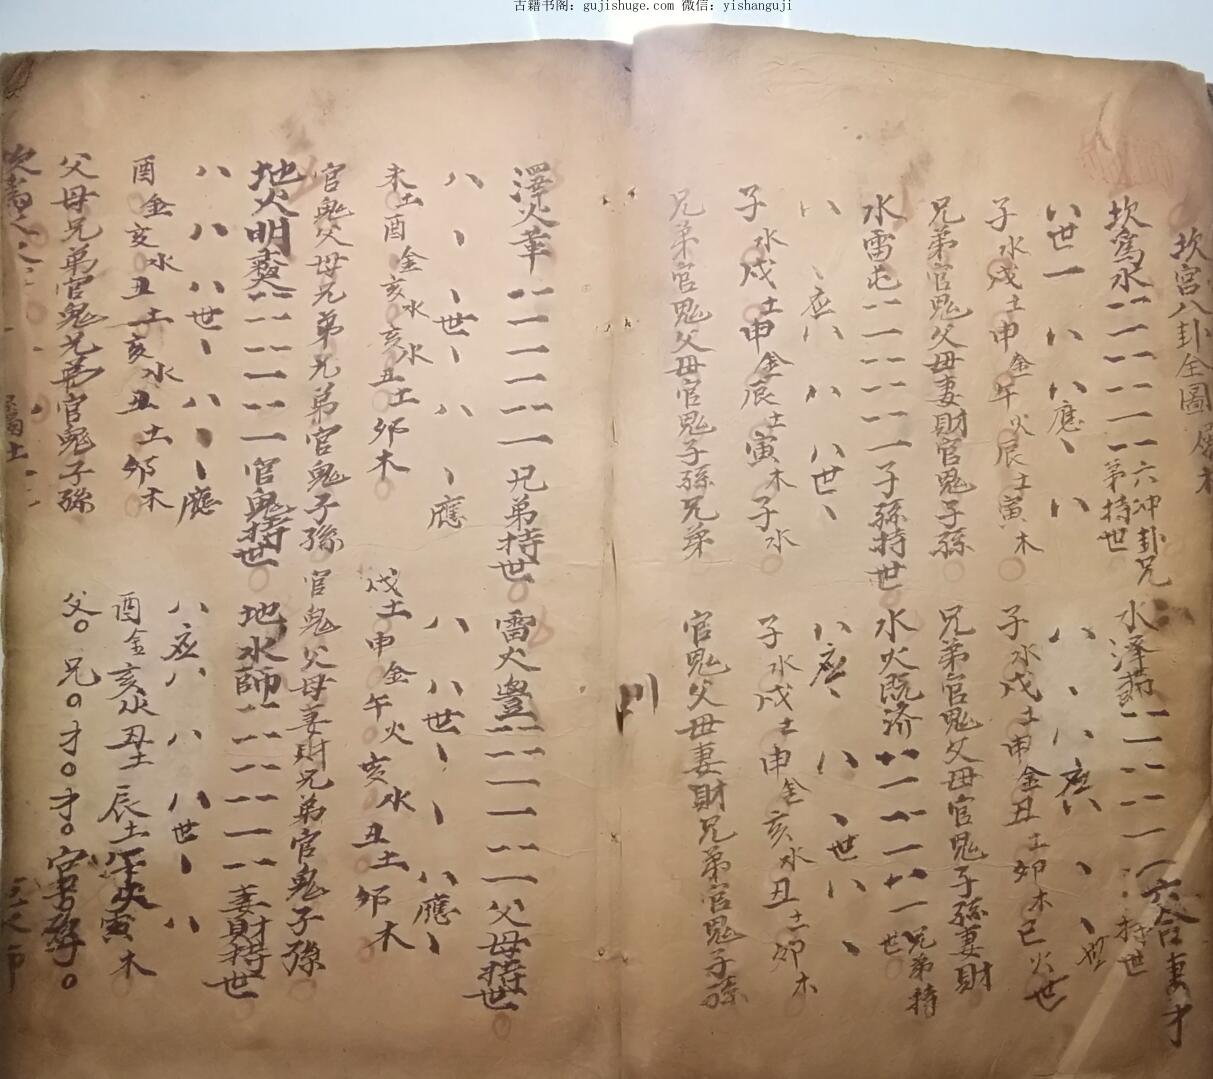 古籍书阁：gujishuge.com 微信：yishanguji
坎宫八卦全圖 屬水
坎為水 六冲卦兄
弟持世
八世 八 八應 八
子水戌土申金午火辰土寅木
兄弟官鬼父母妻財官鬼子孫
水雷屯 子孫持世
八 應八 八 八世
子水戌土申金辰土寅木子水
兄弟官鬼父母官鬼子孫兄弟
水澤節 六合妻才
持世
八 八應八 世
子水戌土申金丑土卯木巳火世
兄弟官鬼父母官鬼子孫妻財
水火既济 兄弟持
世
八應 八 世八
子水戌土申金亥水丑土卯木
官鬼父母妻財兄弟官鬼子孫
澤火革 兄弟持世
八 世 八 應
未土酉金亥水亥水丑土卯木
官鬼父母兄弟兄弟官鬼子孫
地火明夷 官鬼持世
八 八 八世 八 應
酉金亥水丑土亥水丑土卯木
父母兄弟官鬼兄弟官鬼子孫
雷火豐 父母持世
八 八世 八應
戌土申金午火亥水丑土卯木
官鬼父母妻財兄弟官鬼子孫
地水師 妻財持世
八應八 八 八世 八
酉金亥水丑土辰土午火寅木
父 兄 才 才 官